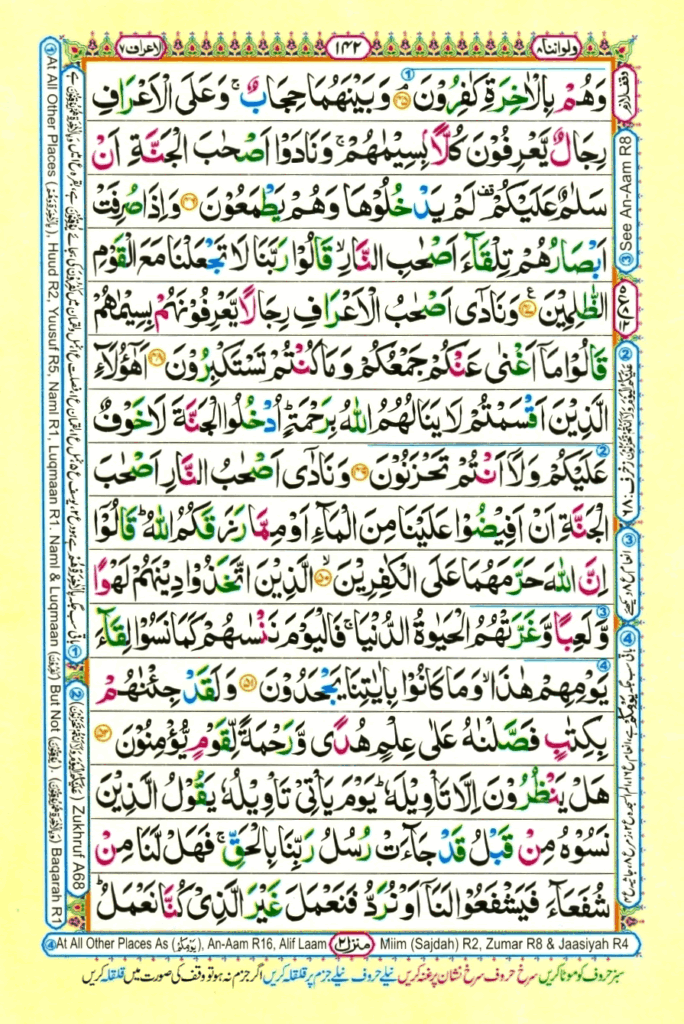 ولواننا ٨
١٤٢
الاعراف ٧
وَهُمْ بِالْاٰخِرَةِ كٰفِرُوْنَ ﴿٤٥﴾ وَبَيْنَهُمَا حِجَابٌ ۚ وَعَلَى الْاَعْرَافِ
رِجَالٌ يَّعْرِفُوْنَ كُلًّاۢ بِسِيْمٰىهُمْ ۚ وَنَادَوْا اَصْحٰبَ الْجَنَّةِ اَنْ
سَلٰمٌ عَلَيْكُمْ ۫ لَمْ يَدْخُلُوْهَا وَهُمْ يَطْمَعُوْنَ ﴿٤٦﴾ وَاِذَا صُرِفَتْ
اَبْصَارُهُمْ تِلْقَآءَ اَصْحٰبِ النَّارِ ۙ قَالُوْا رَبَّنَا لَا تَجْعَلْنَا مَعَ الْقَوْمِ
الظّٰلِمِيْنَ ﴿٤٧﴾ وَنَادٰٓى اَصْحٰبُ الْاَعْرَافِ رِجَالًا يَّعْرِفُوْنَهُمْ بِسِيْمٰىهُمْ
قَالُوْا مَآ اَغْنٰى عَنْكُمْ جَمْعُكُمْ وَمَا كُنْتُمْ تَسْتَكْبِرُوْنَ ﴿٤٨﴾ اَهٰٓؤُلَآءِ
الَّذِيْنَ اَقْسَمْتُمْ لَا يَنَالُهُمُ اللّٰهُ بِرَحْمَةٍ ؕ اُدْخُلُوا الْجَنَّةَ لَا خَوْفٌ
عَلَيْكُمْ وَلَآ اَنْتُمْ تَحْزَنُوْنَ ﴿٤٩﴾ وَنَادٰٓى اَصْحٰبُ النَّارِ اَصْحٰبَ
الْجَنَّةِ اَنْ اَفِيْضُوْا عَلَيْنَا مِنَ الْمَآءِ اَوْ مِمَّا رَزَقَكُمُ اللّٰهُ ؕ قَالُوْٓا
اِنَّ اللّٰهَ حَرَّمَهُمَا عَلَى الْكٰفِرِيْنَ ﴿٥٠﴾ الَّذِيْنَ اتَّخَذُوْا دِيْنَهُمْ لَهْوًا
وَّلَعِبًا وَّغَرَّتْهُمُ الْحَيٰوةُ الدُّنْيَا ۚ فَالْيَوْمَ نَنْسٰىهُمْ كَمَا نَسُوْا لِقَآءَ
يَوْمِهِمْ هٰذَا ۙ وَمَا كَانُوْا بِاٰيٰتِنَا يَجْحَدُوْنَ ﴿٥١﴾ وَلَقَدْ جِئْنٰهُمْ
بِكِتٰبٍ فَصَّلْنٰهُ عَلٰى عِلْمٍ هُدًى وَّرَحْمَةً لِّقَوْمٍ يُّؤْمِنُوْنَ ﴿٥٢﴾
هَلْ يَنْظُرُوْنَ اِلَّا تَاْوِيْلَهٗ ؕ يَوْمَ يَاْتِيْ تَاْوِيْلُهٗ يَقُوْلُ الَّذِيْنَ
نَسُوْهُ مِنْ قَبْلُ قَدْ جَآءَتْ رُسُلُ رَبِّنَا بِالْحَقِّ ۚ فَهَلْ لَّنَا مِنْ
شُفَعَآءَ فَيَشْفَعُوْا لَنَآ اَوْ نُرَدُّ فَنَعْمَلَ غَيْرَ الَّذِيْ كُنَّا نَعْمَلُ ؕ
وقف لازم
③ See An-Aam R8
① At All Other Places (بِالْاٰخِرَةِ هُمْ), Huud R2, Yuusuf R5, Naml R1, Luqmaan R1. Naml & Luqmaan But Not Baqarah R1
② Zukhruf A68
④ At All Other Places As (يَوْمِكُمْ), An-Aam R16, Alif Laam
منزل ٢
Miim (Sajdah) R2, Zumar R8 & Jaasiyah R4
سبز حروف کو موٹا کریں سرخ حروف سرخ نشان پر غنہ کریں نیلے حروف نیلے جزم پر قلقلہ کریں اگر جزم نہ ہو تو وقف کی صورت میں قلقلہ کریں